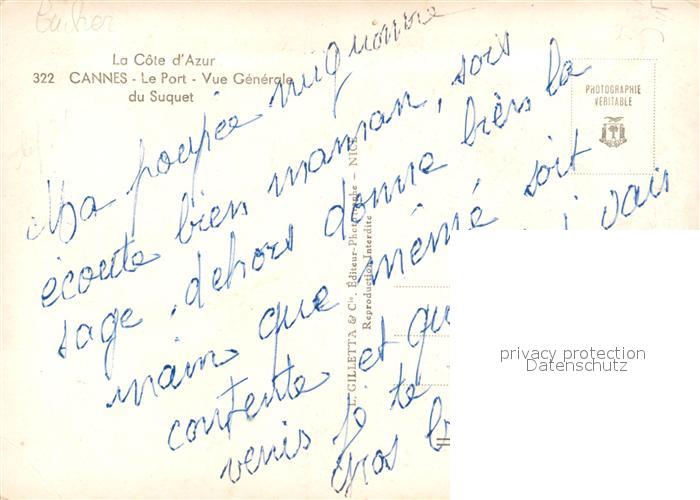 La Côte d'Azur
322 CANNES - Le Port - Vue Générale
du Suquet
PHOTOGRAPHIE
VÉRITABLE
L. GILLETTA & Cie. Éditeur-Photographe - NICE
Reproduction Interdite
Ma poupée mignonne
écoute bien maman, sois
sage, dehors donne bien la
main que mémé soit
contente et qu
vais
venir Je te
gros b
privacy protection
Datenschutz